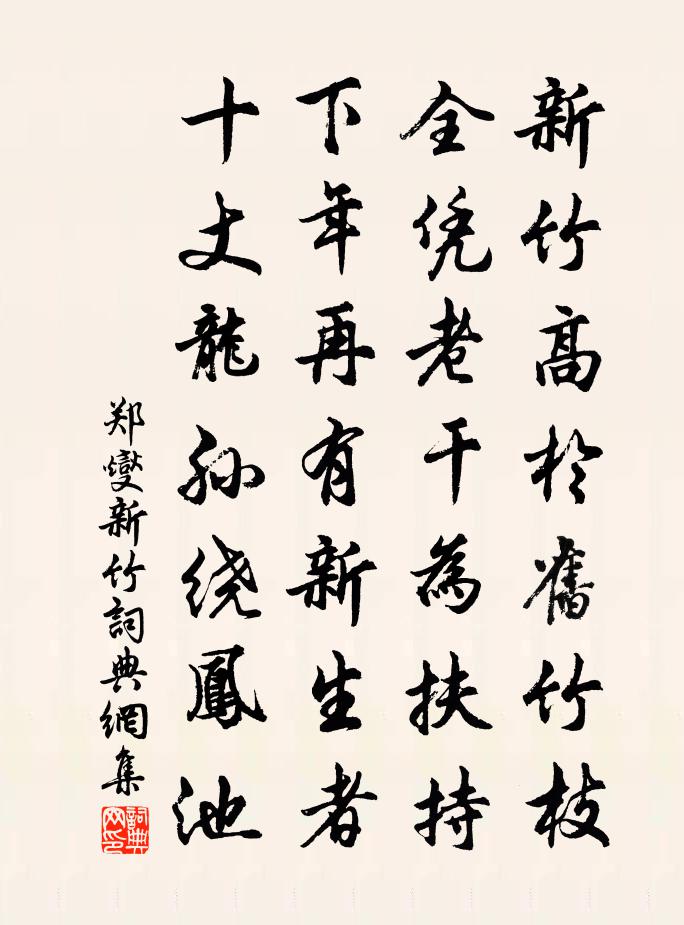 新竹高於舊竹枝
全凭老干為扶持
下年再有新生者
十丈龍孙绕鳳池
郑燮新竹詞典網集
詞典网印